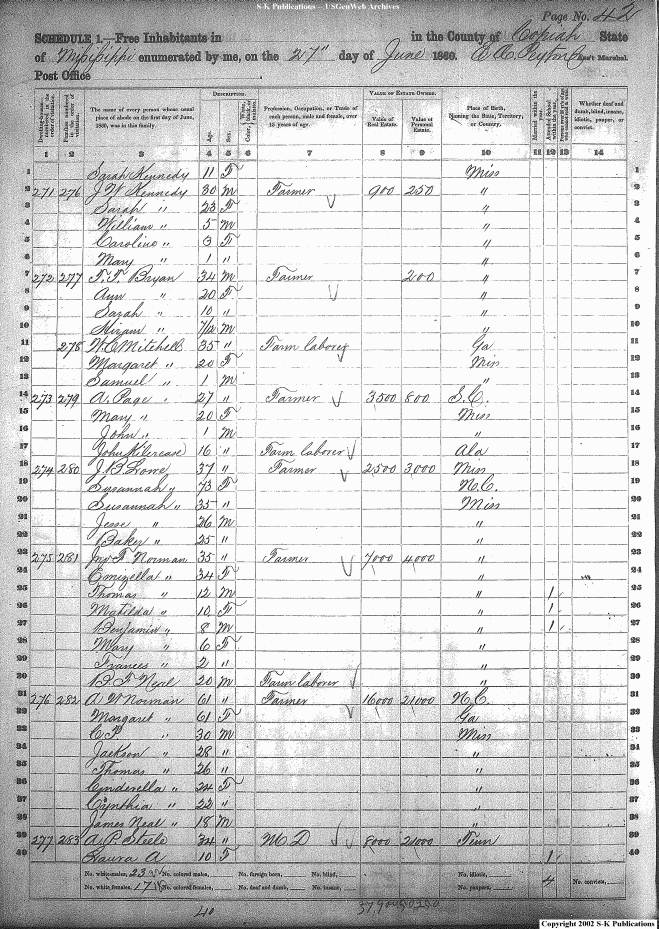 S-K Publications -- USGenWeb Archives
Page No. 42
SCHEDULE 1.—Free Inhabitants in in the County of Copiah State
of Mississippi enumerated by me, on the 27" day of June 1860. Ass't Marshal.
Post Office
Dwelling-houses—numbered in the order of visitation. Families numbered in the order of visitation. The name of every person whose usual place of abode on the first day of June, 1860, was in this family. DESCRIPTION. Age. Sex. Color, Profession, Occupation, or Trade of each person, male and female, over 15 years of age. VALUE OF ESTATE OWNED. Value of Real Estate. Value of Personal Estate. Place of Birth, Naming the State, Territory, or Country. Married within the year. Attended School within the year. Whether deaf and dumb, blind, insane, idiotic, pauper, or convict.
1 2 3 4 5 6 7 8 9 10 11 12 13 14
1 Sarah Kennedy 11 F Miss 1
2 271 276 J W Kennedy 30 m Farmer 900 250 " 2
3 Sarah " 23 F " 3
4 William " 5 m " 4
5 Caroline " 3 F " 5
6 Mary " 1 " " 6
7 272 277 F. F. Bryan 34 m Farmer 200 " 7
8 Ann " 20 F " 8
9 Sarah " 10 " " 9
10 Hiram " 7/12 m " 10
11 278 W. C. Mitchell 35 " Farm laborer Ga 11
12 Margaret " 20 F Miss 12
13 Samuel " 1 m " 13
14 273 279 A. Page 27 " Farmer 3500 800 S.C. 14
15 Mary " 20 F Miss 15
16 John " 1 m " 16
17 John 16 " Farm laborer Ala 17
18 274 280 J. B. Lowe 37 " Farmer 2500 3,000 Miss 18
19 Susannah " 73 F N.C. 19
20 Susannah " 35 " Miss 20
21 Jesse " 26 m " 21
22 Baker " 25 " " 22
23 275 281 Jno F. Norman 35 " Farmer 7000 4000 " 23
24 Emizella " 34 F " 24
25 Thomas " 12 m " 1 25
26 Matilda " 10 F " 1 26
27 Benjamin " 8 m " 1 27
28 Mary " 6 F " 28
29 Frances " 2 " " 29
30 F Neal 20 m Farm laborer " 30
31 276 282 A W Norman 61 " Farmer 16000 21000 N.C. 31
32 Margaret " 61 F Ga 32
33 C P " 30 m Miss 33
34 Jackson " 28 " " 34
35 Thomas " 26 " " 35
36 Cinderella " 24 F " 36
37 Cynthia " 22 " " 37
38 James Neal " 18 m " 38
39 277 283 A. P. Steele 34 " M. D 8000 21000 Tenn 39
40 Laura A 10 F " 1 40
No. white males, 23 No. colored males, No. foreign born, No. blind, No. idiotic,
No. white females, 17 No. colored females, No. deaf and dumb, No. insane, No. paupers, 4 No. convicts,
40
Copyright 2002 S-K Publications